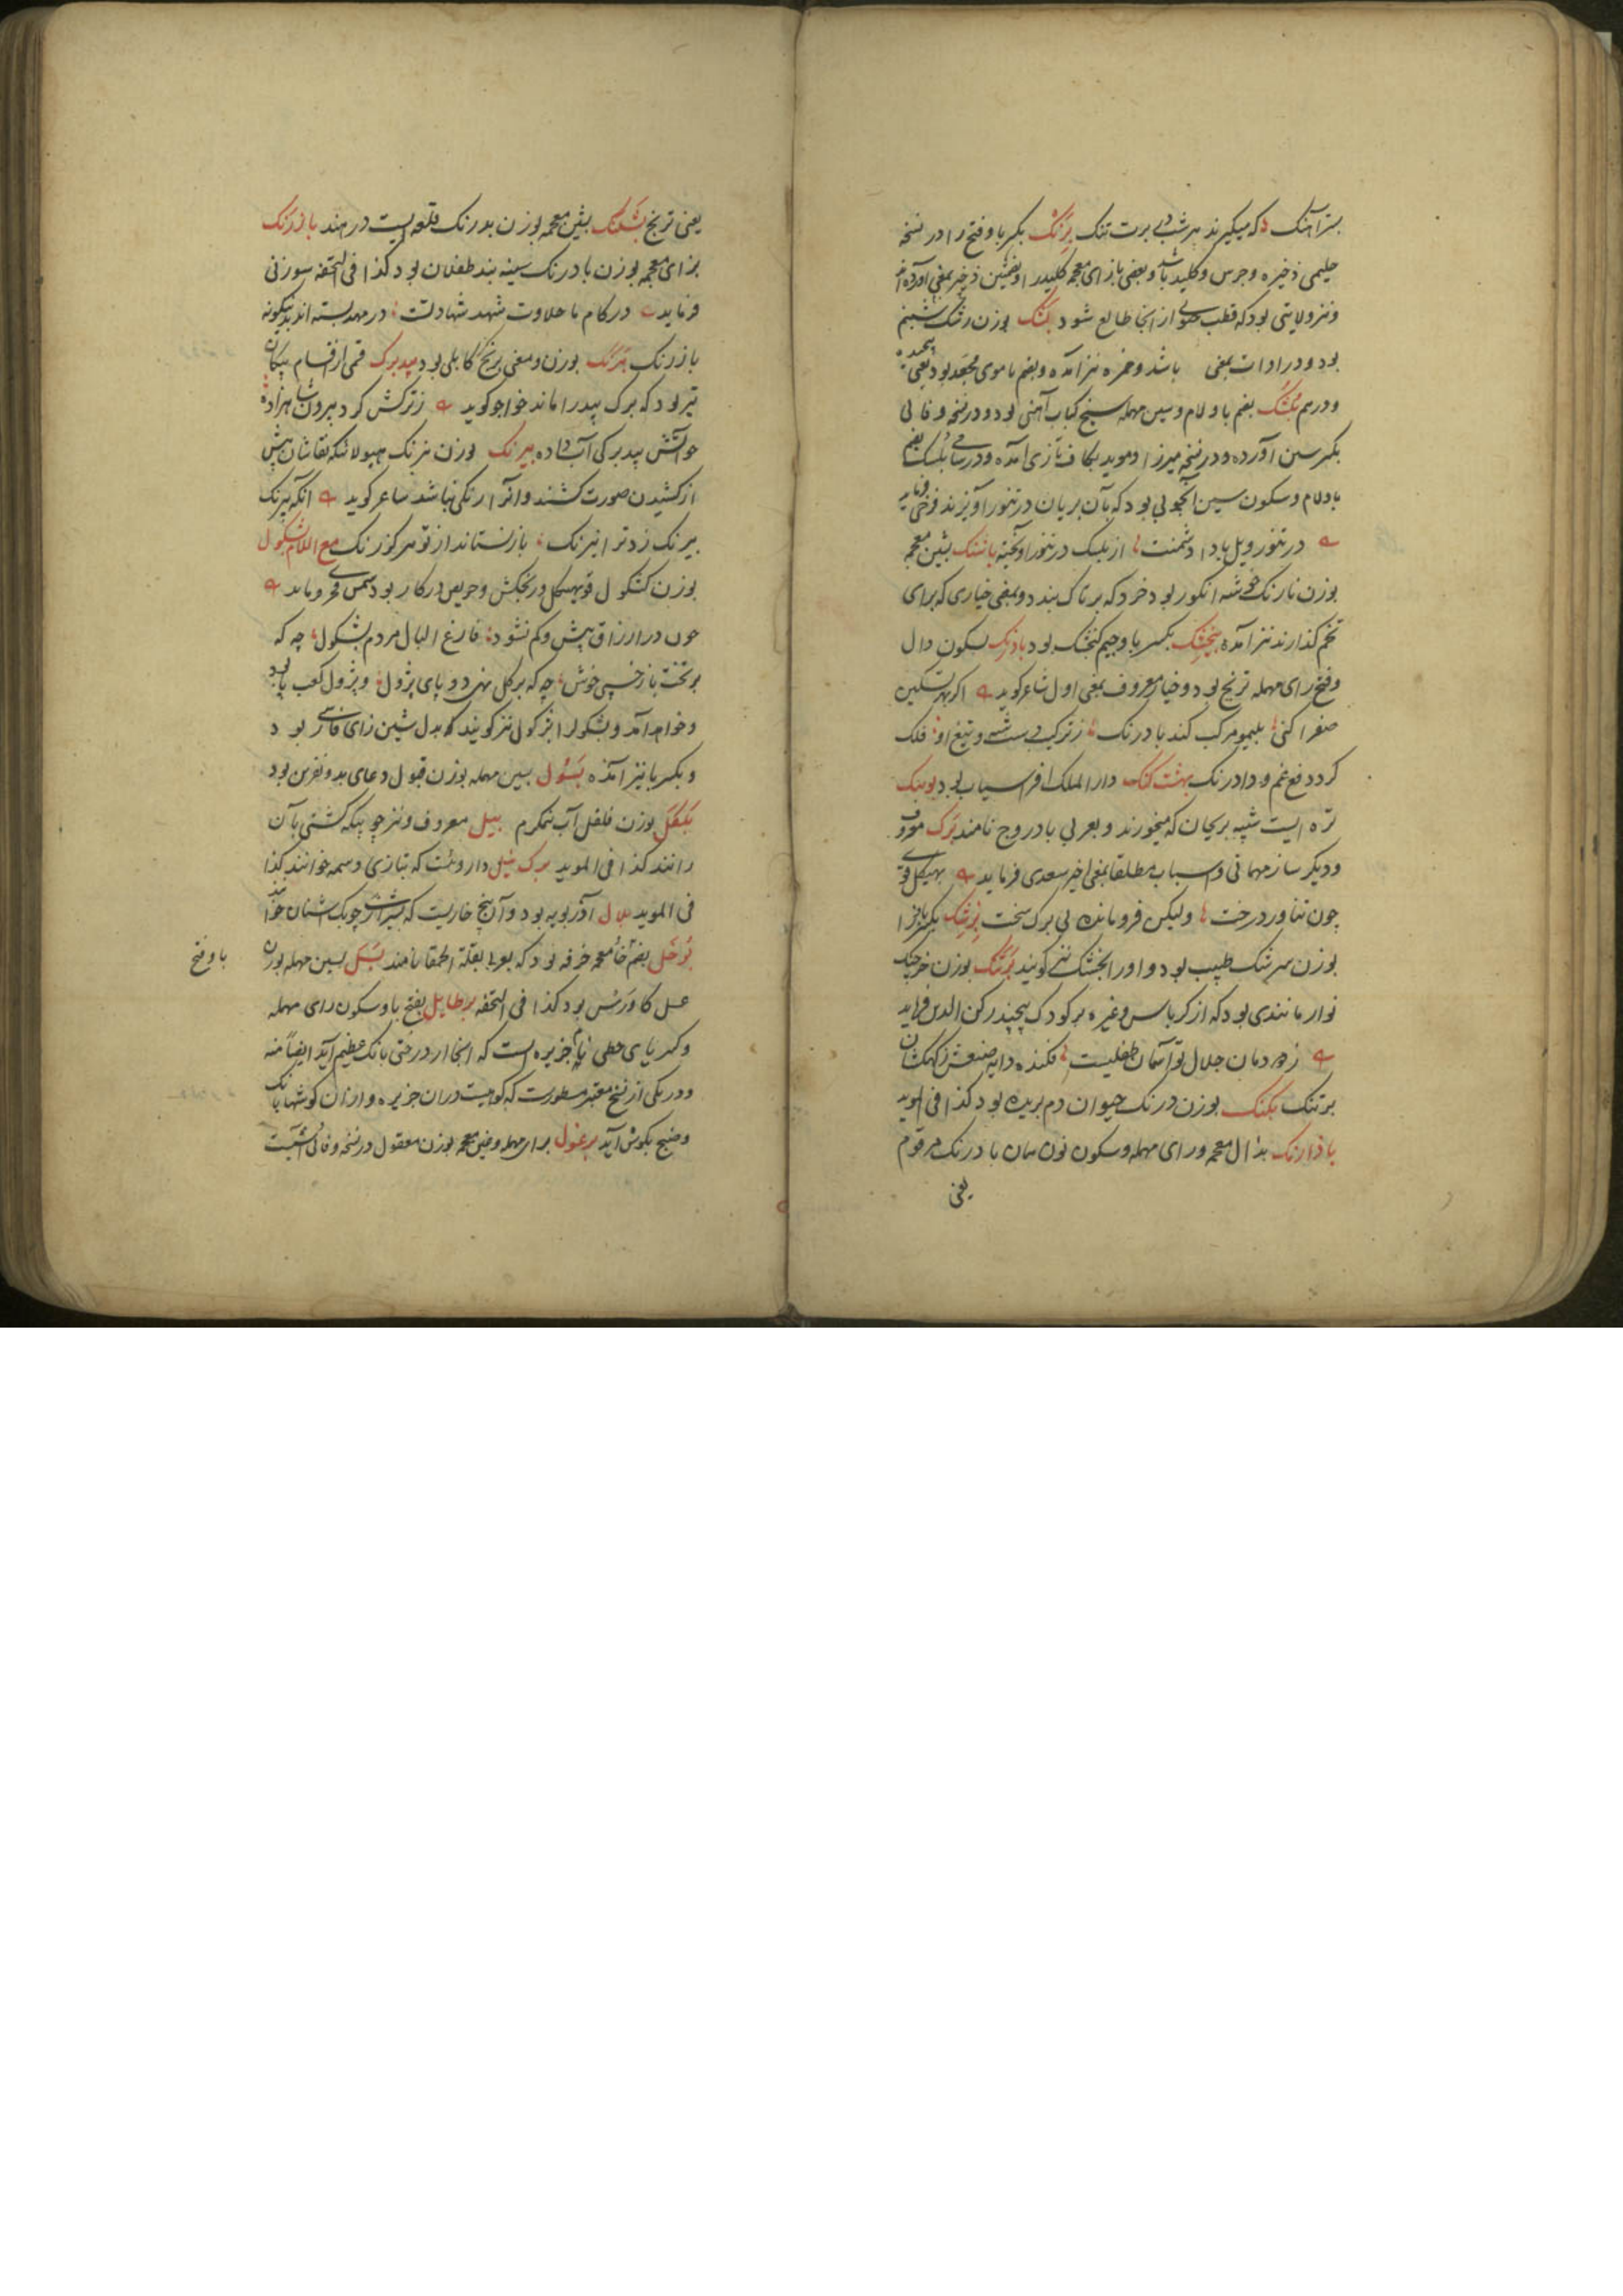 بسترآهنک که میکیرند هر شبی برت تنک برنک بکسر با و فتح را در نسخه
حلیمی ذخیره و جرس و کلید باشد و بعضی بازای معجمه کلیدر
و نیز ولایتی بود که قطب جنوبی از انجا طالع شود بشک بوزن رشک شبنم
بود و در ادات بمعنی باشد و خمره نیز آمده و بضم با موی مجعد بود یعنی پیچیده
و درهم بلسک بضم با و لام و سین مهمله سیخ کباب آهنی بود و در نسخه وفائی
بکسر سین آورده و در نسخه میرزا و موید بکاف تازی آمده و در رساله بلسک بضم
با و لام و سکون سین چوبی بود که بآن بریان در تنور آویزند فرخی فرماید
در تنور ویل بادا دشمنت از بلسک در تنور آویخته باشنک بشین معجمه
بوزن نارنک خوشه انکور بود خرد که بر تاک بند و بمعنی خیاری که برای
تخم کذارند نیز آمده بنجشک بکسر با و جیم کنجشک بود بادرنک بسکون دال
و فتح رای مهمله ترنج بود و خیار معروف بمعنی اول شاعر کوید اکر بهر تسکین
صفرا کنی بلیمو مرکب کند بادرنک ز ترکیب دست و تیغ او فلک
کرد دفع غم و دادرنک بهشت کنک دار الملک افراسیاب بود بوینک
تره ایست شبیه بریحان که میخورند و بعربی بادروج نامند برک معروف
و دیکر ساز مهمانی و اسباب مطلقا بمعنی اخیر سعدی فرماید بهیکل قوی
چون تناور درخت ولیکن فرومانده بی برک سخت بزشک بکسر با و زا
بوزن سرشک طبیب بود و او را بجشک نیز کویند برتنک بوزن خرچنک
نوار مانندی بود که از کرباس و غیره بر کودک پیچند رکن الدین فرماید
زمهد مان جلال تو آسمان طفلیست فکنده دایه صنعش ز کهکشان
برتنک بکنک بوزن درنک حیوان دم بریده بود کذا فی الموید
باذارنک بذال معجمه و رای مهمله و سکون نون همان بادرنک مرقوم
یعنی
یعنی ترنج بشنک بشین معجمه بوزن بدرنک قلعه ایست در هند بازرنک
بزای معجمه بوزن بادرنک سینه بند طفلان بود کذا فی التحفه سوزنی
فرماید در کام ما حلاوت شهد شهادتست در مهد بسته اند بدینکونه
بازرنک برنک بوزن و معنی برنج کابلی بود بیدبرک قسمی از اقسام پیکان
تیر بود که برک بید را ماند خواجو کوید ز ترکش کرد بیرون شاهزاده
چو آتش بیدبرکی آب داده بیرنک بوزن نیرنک هیولا بلکه نقاشان پیش
از کشیدن صورت کشند و آنرا رنکی نباشد شاعر کوید آنکه بیرنک
بیرنک زد ترا نیرنک باز نستاند از تو هرکز رنک مع اللام بشکول
بوزن کشکول قویهیکل و رنجکش و حریص در کار بود شمس فخری فرماید
چون در ارزاق بیش و کم نشود فارغ البال مردم بشکول چه که
بر تخت باز خسپی خوش چه که بر کل نهی دو پای بژول و بژول کعب پا بود
و خواهد آمد و بشکول را بژکول نیز کویند که بدل شین زای فارسی بود
و بکسر با نیز آمده بسول بسین مهمله بوزن قبول دعای بد و نفرین بود
بلغل بوزن فلفل آب نیمکرم بیل معروف و نیز چوبیکه کشتی بآن
رانند کذا فی الموید برک نیل داروئست که بتازی وسمه خوانند کذا
فی الموید بلال آذربویه بود و آن بیخ خاریست که بشیراز چوبک اشنان خوانند
بوخل بضم خاء معجمه خرفه بود که بعربی بقلة الحمقا نامند بسل بسین مهمله بوزن با و فتح
عسل کاورس بود کذا فی التحفه برطایل بفتح با و سکون رای مهمله
و کسر یای حطی نام جزیره است که آنجا از درختی بانک عظیم آید ایضاً منه
و در یکی از نسخ معتبر مسطورست که کوهیست دران جزیره و ازان کوه شبها بانک
و صنج بکوش آید برغول برای مهمله و غین معجمه بوزن معقول در نسخه وفائی آشیست